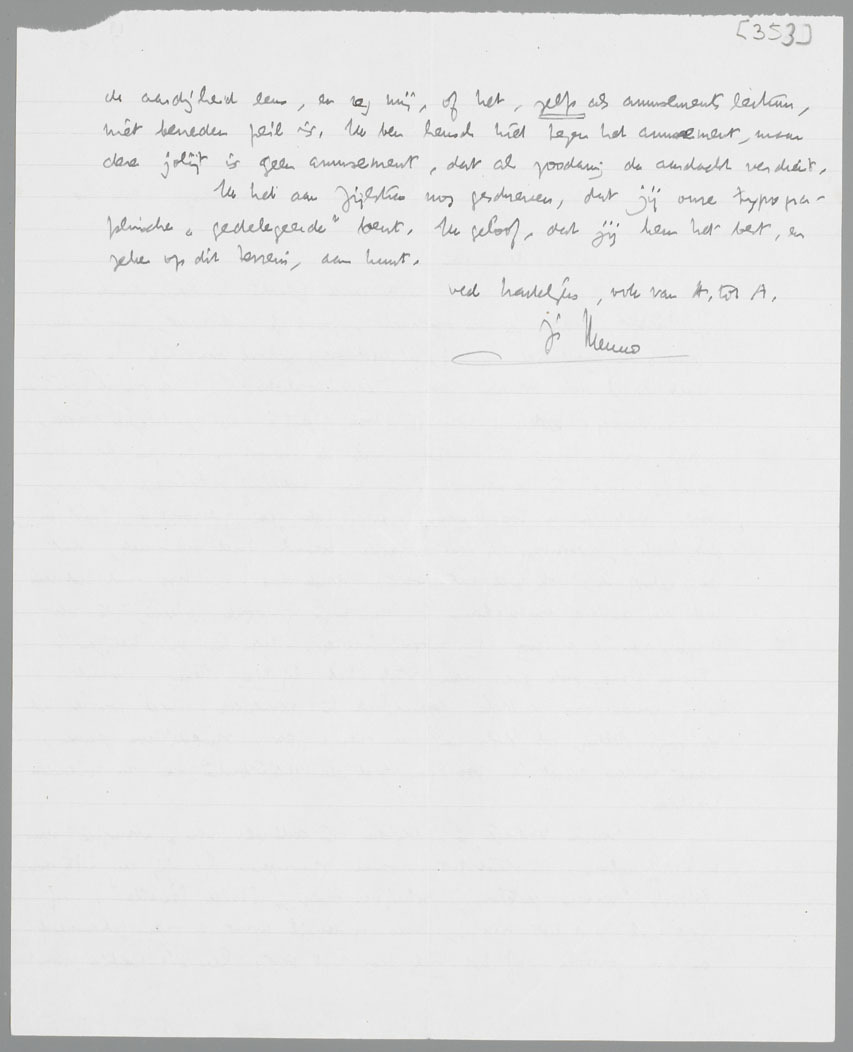 [353]
de aardigheid eens, en zeg mij, of het, zelfs als amusements lectuur,
niét beneden peil is. Ik ben heusch niet tegen het amusement, maar
deze jolijt is geen amusement, dat als zoodanig de aandacht verdient.
Ik heb aan Zijlstra nog geschreven, dat jij onze typogra-
phische „gedelegeerde" bent. Ik geloof, dat jij hem het best, en
zeker op dit terrein, aan kunt.
veel hartelijks, ook van A. tot A.
je Menno